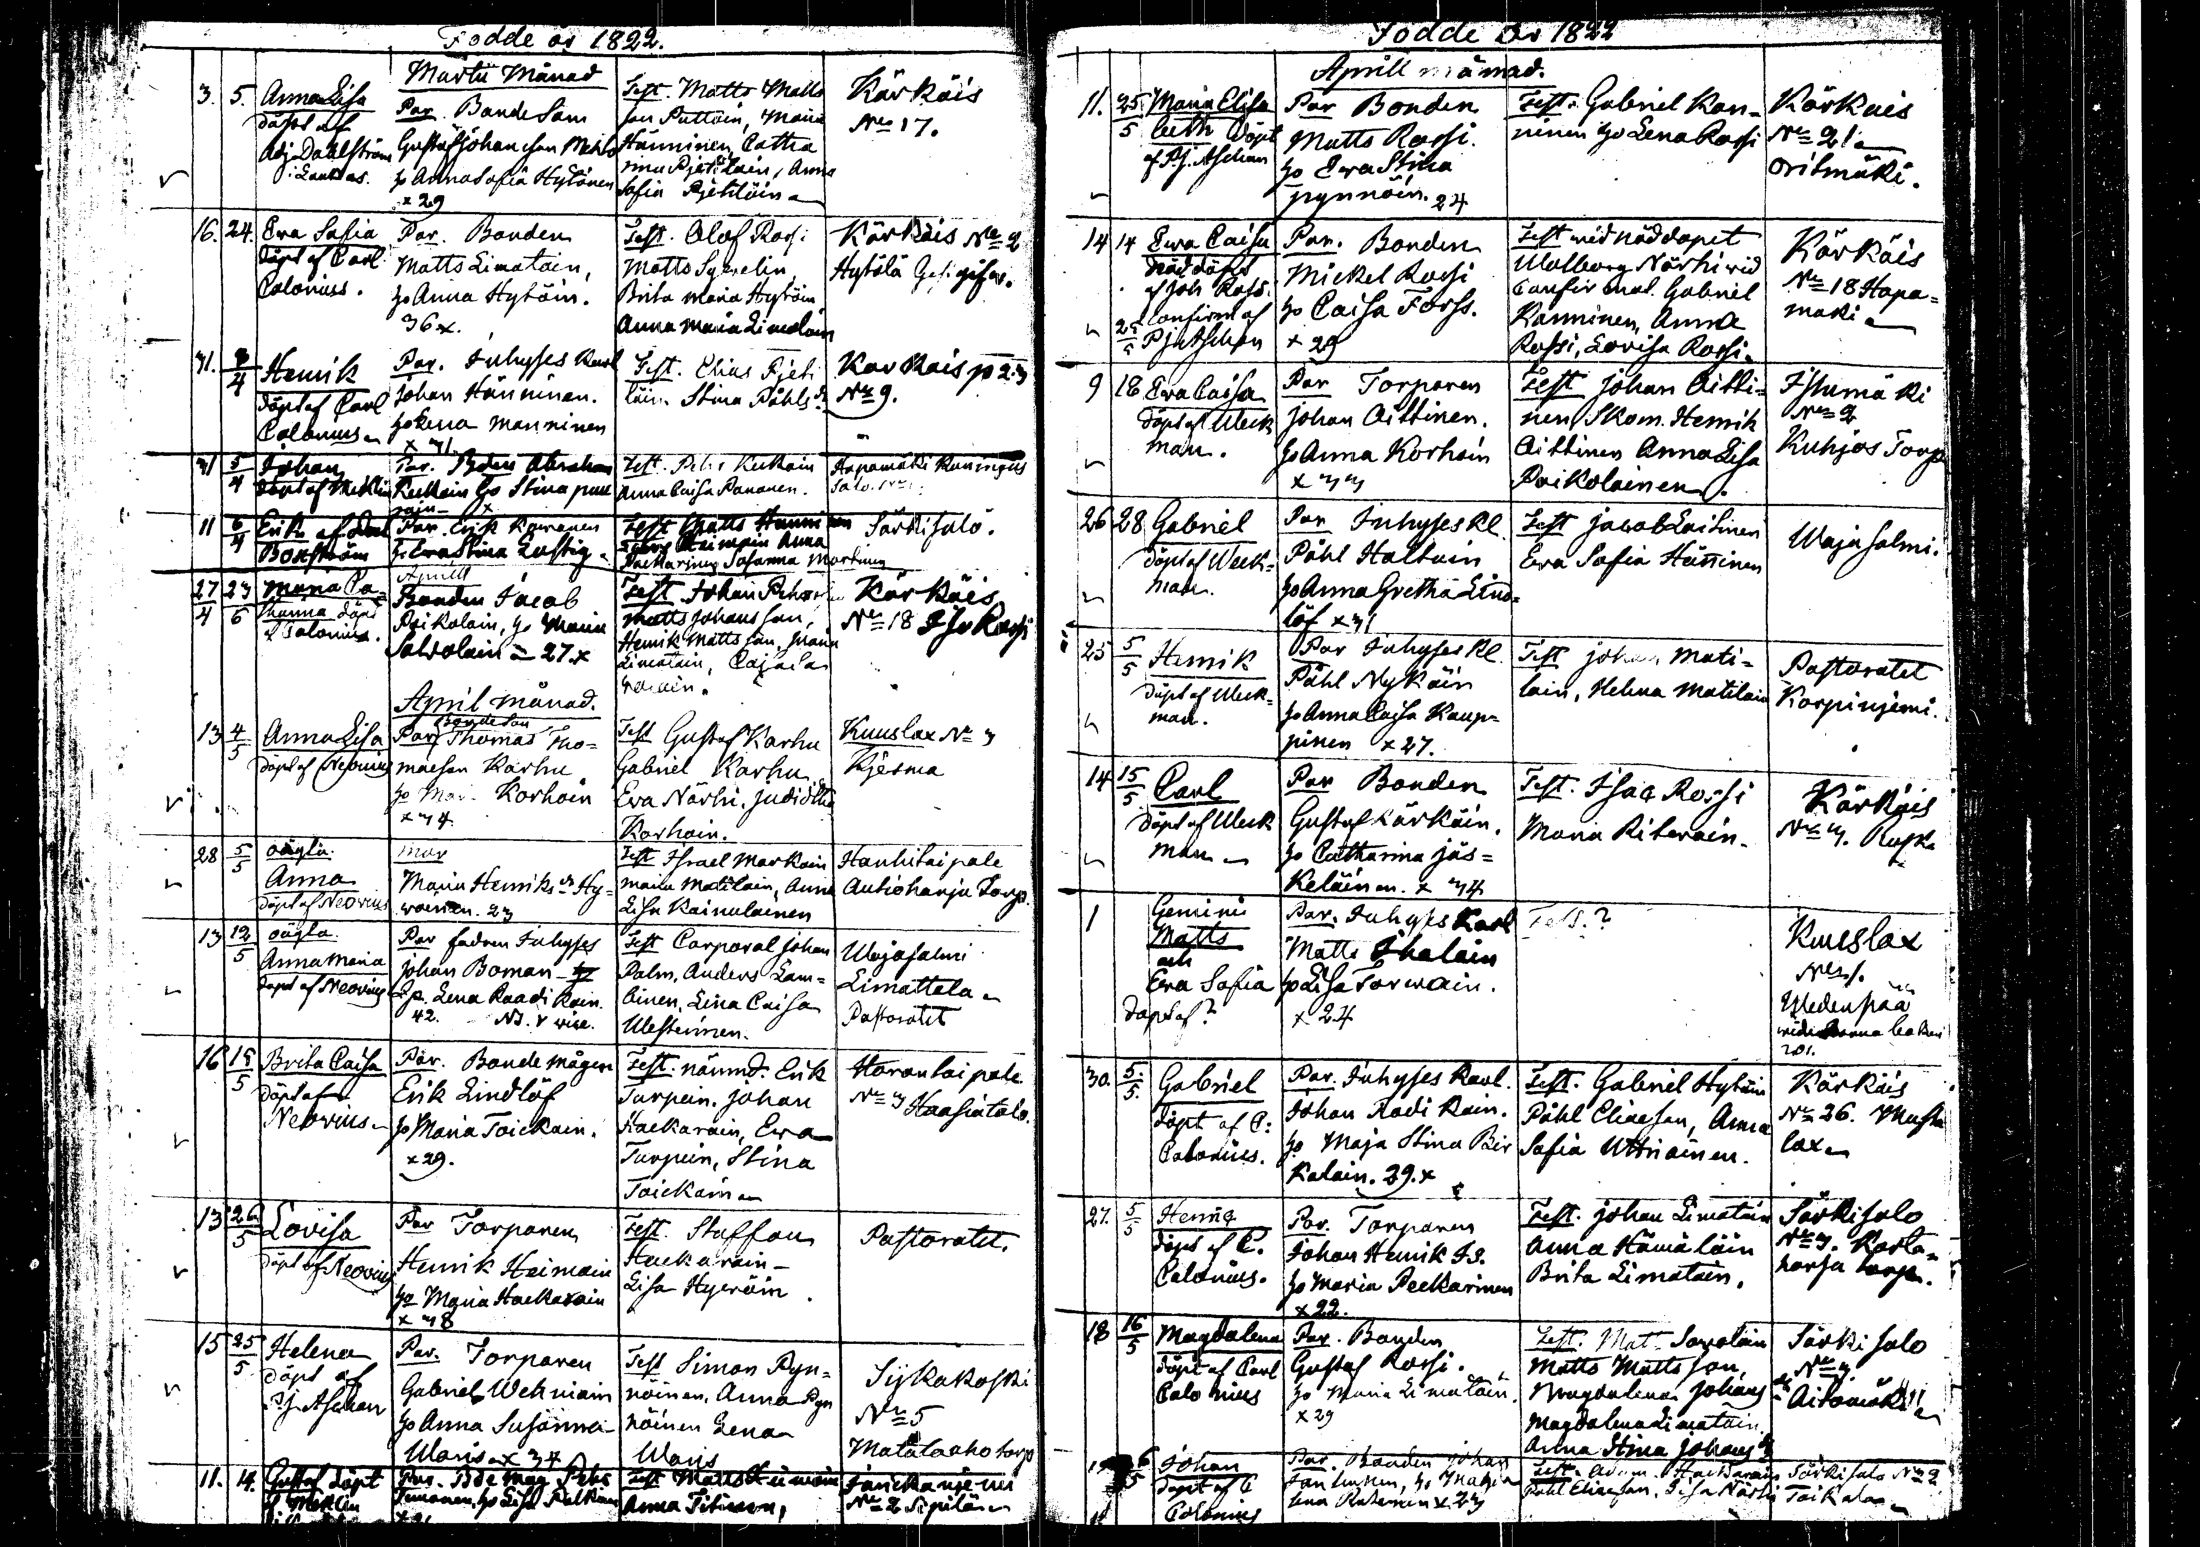 Födde år 1822.
Martii Månad
3. 5. Anna Lisa
döpt af
Adj. Dahlström
i Laukas.
Par. Bonde Son
Gustaf Johansson
ho Anna Sofia Hytönen
x 29
Test. Matts Matts
son Puttoin, Maria
Hänninen, Catha
rina Pjetiläin, Anna
Sofia Pjetiläin
Kärkäis
No 17.
16. 24. Ewa Sofia
döpt af Carl
Calonius.
Par. Bonden
Matts Limatain,
ho Anna Hytöin.
36 x.
Test. Olof Rossi
Matts Sywelin
Brita Maria Hytöin
Anna Maria Limatain
Kärkäis No 2
Hytölä
31. 8/4 Henrik
döpt af Carl
Calonius
Par. Inhyses Karl
Johan Hänninen.
ho Lena Manninen
x 31.
Test. Elias Pjeti
läin. Stina Påhls dr
Karkais
No 9.
31 5/4 Johan
döpt af Meklin
Par. Abraham
Keckain ho Stina
Test. Petr Keckain
Anna Caisa Pananen.
Hapamäki Kuningas
11 6/4 Erik
Boxström
Par. Erik Kowanen
ho Ewa Stina Lustig
Test. Matts Hänninen
Anna
Packarinen Susanna Martinen
Särkisalo.
Aprill
27/4 23/6 Maria Ca
thanna döpt
af Calonius.
Bonden Jacob
Poikolain, ho Maria
Sawolain 27 x
Test. Johan
Matts Johansson,
Henrik Mattsson, Maria
Limatain, Cajsa
Kärkäis
No 18 Iso Rossi
April månad.
13 4/5 Anna Lisa
döpt af Neovius
Bondeson
Par. Thomas Tho=
maeson Karhu
ho Mar. Korhoin
x 34
Test Gustaf Karhu
Gabriel Karhu
Ewa Närhi, Judith
Korhoin.
Kuuslax No 3
Kjerma
28 5/5 oägta.
Anna
döpt af Neovius
mor
Maria Henriks dr Hy=
woinen. 23
Test Israel Markain
Maria Matilain, Anna
Lisa Kainulainen
Hankitaipale
Autioharju Torp.
13 12/5 oägta.
Anna Maria
döpt af Neovius
Par fadren Inhyses
Johan Boman
Lena Raadikain.
42.
Test Corporal Johan
Palm, Anders Lam=
binen, Lena Caisa
Westerinen.
Wajasalmi
Limattala
Pastoratet
16 15/5 Brita Caisa
döpt af
Neovius
Par. Bonde mågen
Erik Lindlöf
ho Maria Toickain.
x 29.
Test. nämnd. Erik
Turpein. Johan
Hackarain, Ewa
Turpein, Stina
Toickain
Harantaipale
No 3 Haasiatalo.
13 26/5 Lovisa
döpt af Neovius
Par Torparen
Henrik Heimain
ho Maria Hackarain
x 38
Test. Staffan
Hackarain
Lisa Hyeröin.
Pastoratet.
15 25/5 Helena
döpt af
Pj. Aschan
Par. Torparen
Gabriel Wehniain
ho Anna Susanna
Waris x 34
Test Simon Pyn=
nöinen, Anna Pyn
nöinen Lena
Waris
Sijkakoski
No 5
Matalaaho torp
11. 14. Gustaf döpt
af Meklin
Par.
Timonen, ho Lisa Pulkkin
Test Matts
Anna Titinen,
Janickaniemi
No 2 Sipilä
Födde År 1822
Aprill månad.
11. 25/5 Maria Elisa
beth döpt
af Pj. Aschan
Par Bonden
Matts Rossi.
ho Ewa Stina
Pynnöin. 24
Test. Gabriel Kan=
ninen ho Lena Rossi
Kärkais
No 21
Oritmäki.
14 14 Ewa Caisa
nöddöpt
af Joh Rossi
Confirm. af
25/5 Pj Aschan
Par. Bonden
Mickel Rossi
ho Caisa Forss.
x 29
Test wid nöddopet
Walborg Närhi wid
Confirmat. Gabriel
Kanninen, Anna
Rossi, Lovisa Rossi.
Kärkäis
No 18 Hapa=
mäki
9 18 Ewa Caisa
döpt af Weck
man.
Par Torparen
Johan Aittinen.
ho Anna Korhoin
x 33
Test Johan Aitti=
nen, Skom. Henrik
Aittinen Anna Lisa
Poikolainen.
Istumäki
No 2
Kuhjos Torp
26 28 Gabriel
döpt af Weck=
man.
Par Inhyses Kl.
Påhl Haltuin
ho Anna Gretha Lind=
löf x 31
Test Jacob Laitinen
Ewa Sofia Häninen
Wajasalmi.
25 5/5 Henrik
döpt af Weck=
man.
Par Inhyses Kl.
Påhl Nykäin
ho Anna Caisa Kaup=
pinen x 27.
Test Johan Mati=
lain, Helena Matilain
Pastoratet
Korpinjemi.
14 15/5 Carl
döpt af Weck
man
Par Bonden
Gustaf Kärkäin.
ho Catharina Jäs=
keläinen. x 34
Test. Isac Rossi
Maria Riterain.
Kärkäis
No 3.
1 Gemini
Matts
och
Ewa Sofia
döpt af?
Par. Inhyses Karl
Matts Ihalain
ho Lisa Torwain.
x 24
Test.?
Kuuslax
No 1.
Wedenpää
30. 5/5. Gabriel
döpt af C:
Calonius.
Par. Inhyses Karl.
Johan Radikain.
ho Maja Stina Bir
Kalain. 29. x
Test. Gabriel Hytöin
Påhl Eliaeson, Anna
Sofia Uttriainen.
Kärkäis
No 26. Musta
lax
27. 5/5 Henric
döpt af C.
Calonius.
Par. Torparen
Johan Henrik Is.
ho Maria Peckarinen
x 22.
Test. Johan Limatain
Anna Hämäläin
Brita Limatain.
Särkisalo
No 3. Karta=
harju torp.
18 16/5 Magdalena
döpt af Carl
Calonius
Par. Bonden
Gustaf Rossi.
ho Maria Limatain.
x 29
Test. Mat Sawolain
Matts Mattsson
Magdalena Johans dr
Magdalena Limatain.
Anna Stina Johans dr
Särkisalo
No 3
Aitomäki
Johan
döpt af C
Calonius
Par. Bonden Johan
x 23
Test. Adam Hackarain
Påhl Eliaeson, Lisa Närhi
Särkisalo No 2
Toikala